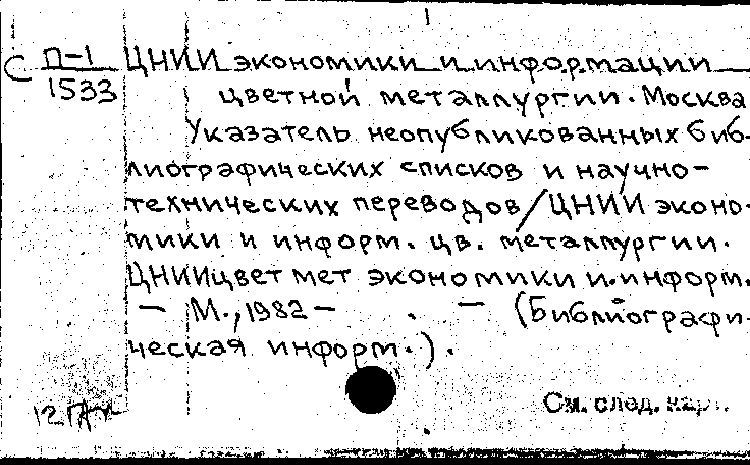 С П-1 ЦНИИ экономики и информации
1533 цветной металлургии. Москва
Указатель неопубликованных биб-
лиографических списков и научно-
технических переводов/ЦНИИ эконо-
мики и информ. цв. металлургии.
ЦНИИцветмет экономики и информ.
— М., 1982 — . — (Библиографи-
ческая информ.).
См. след. карт.